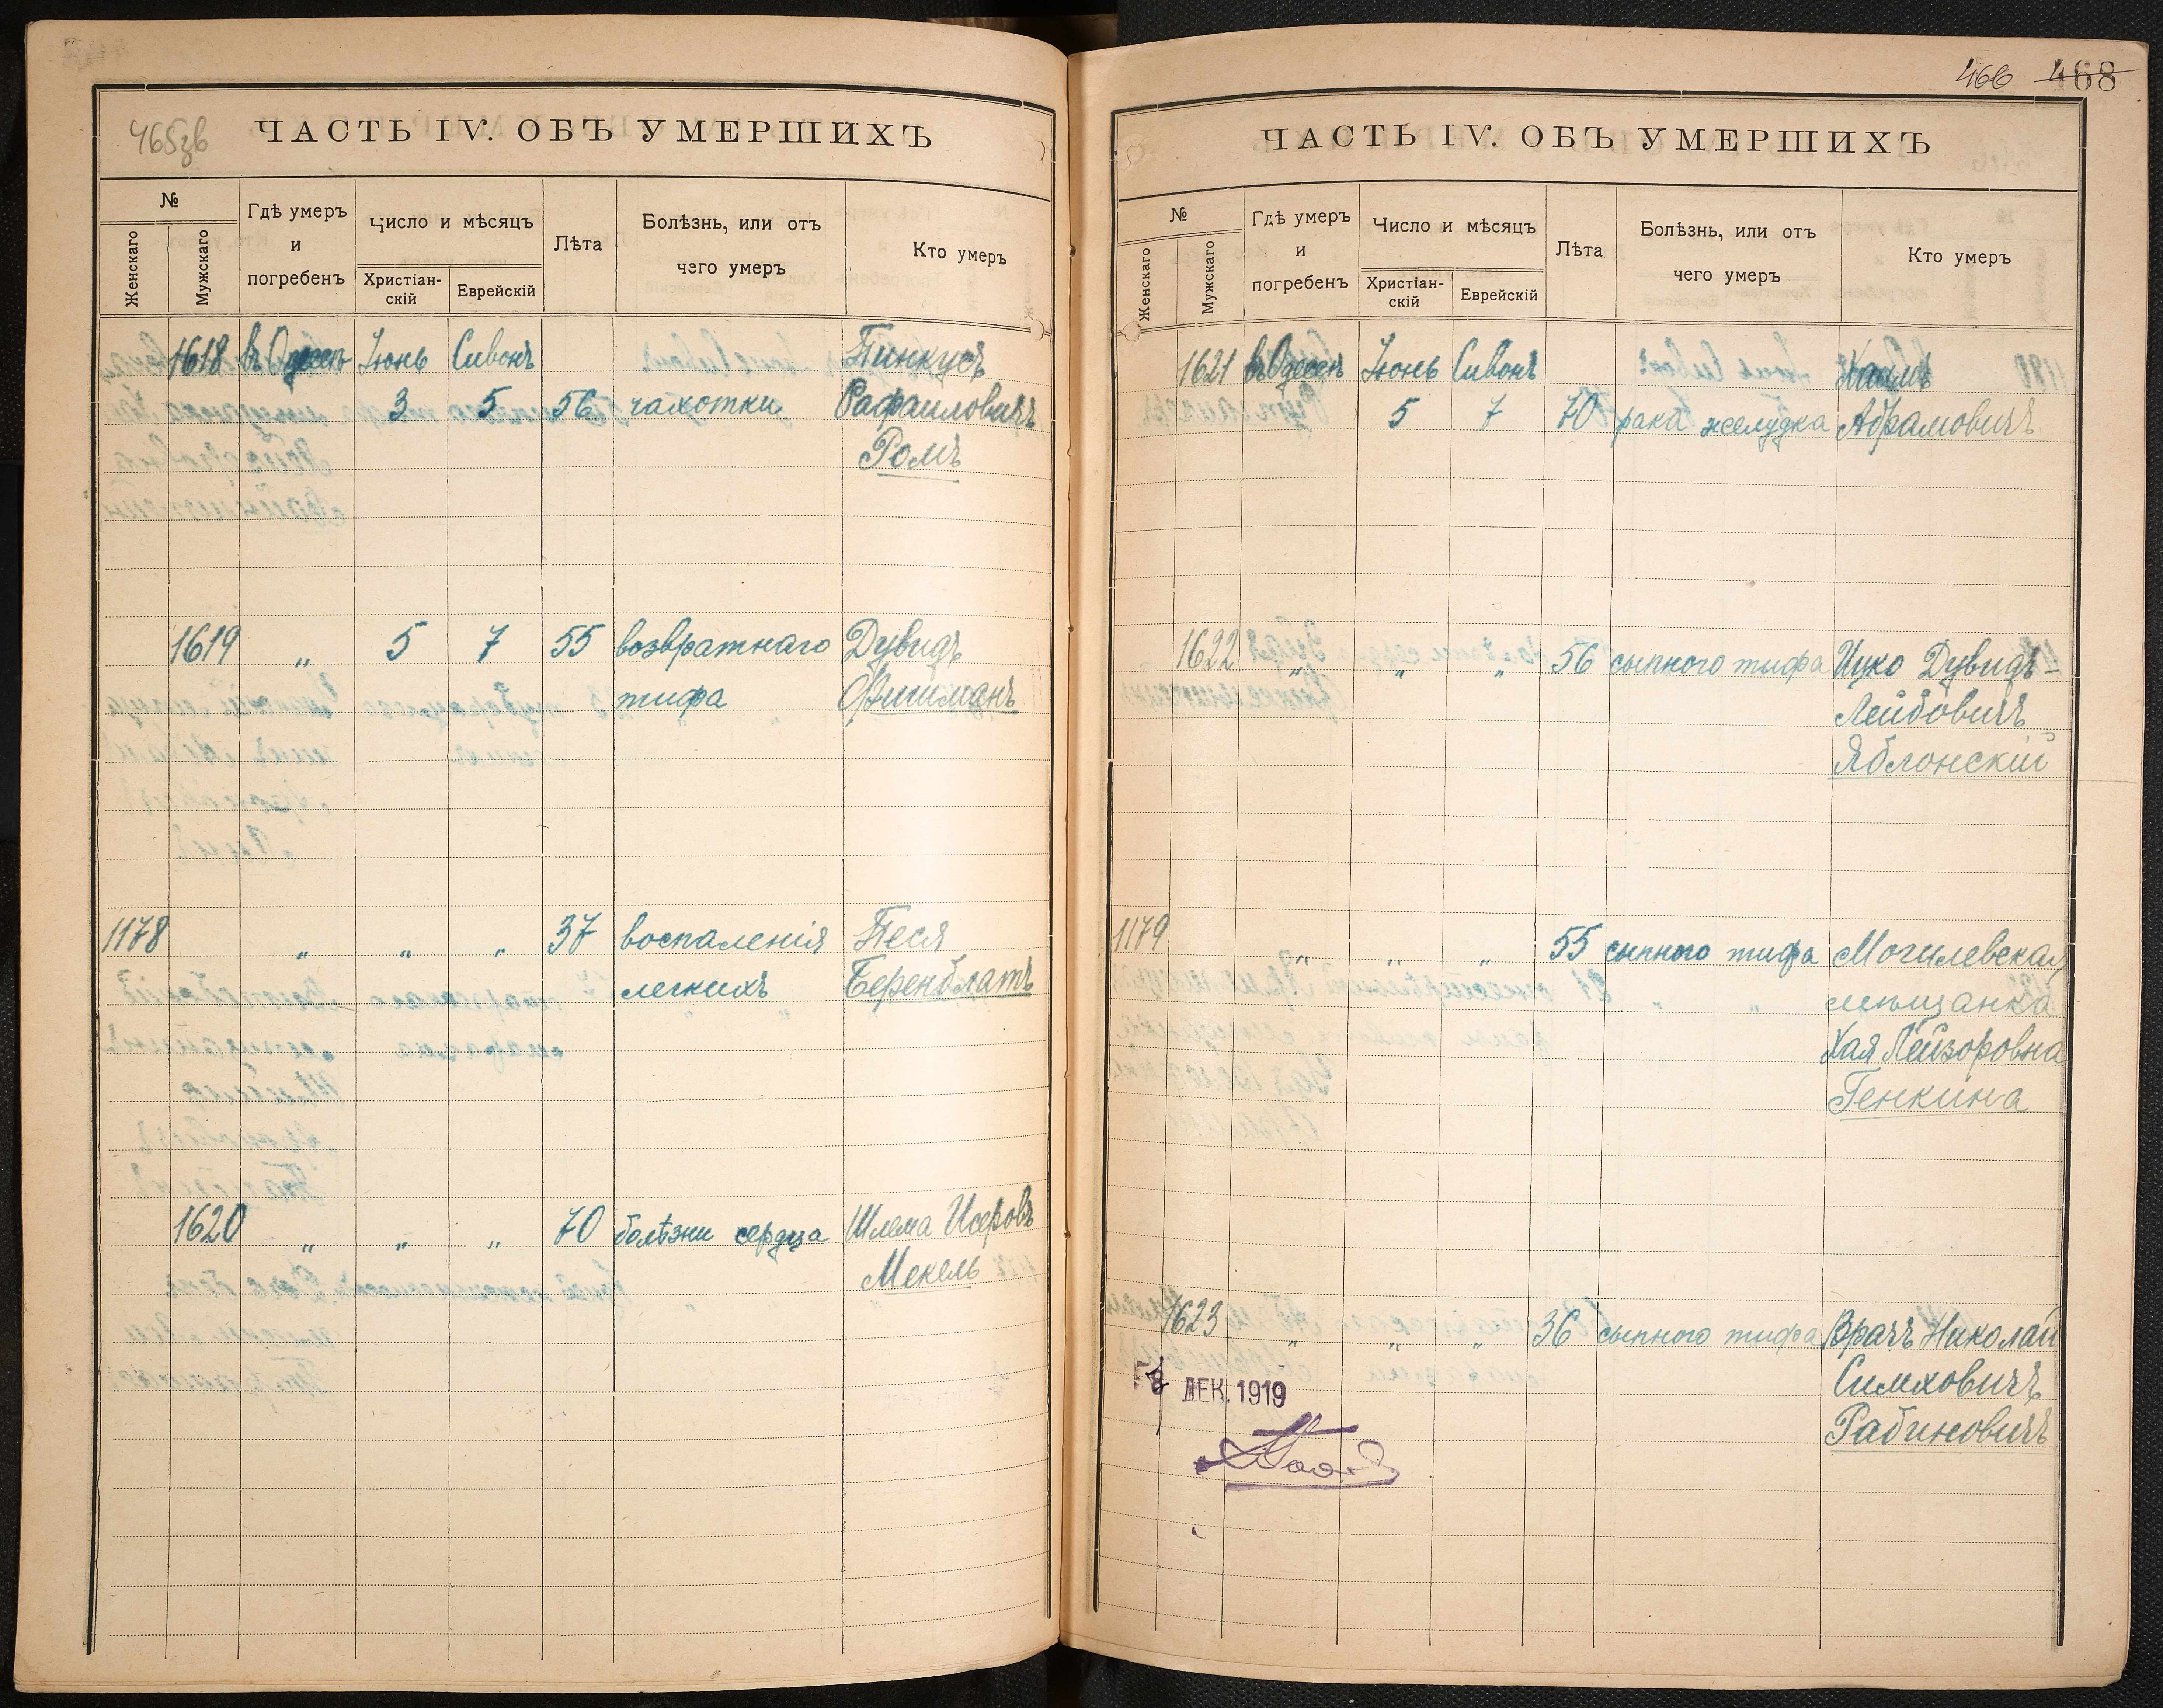 465зв
ЧАСТЬ IV. ОБЪ УМЕРШИХЪ
№
Женскаго
Мужскаго
Гдѣ умеръ
и
погребенъ
Число и мѣсяцъ
Христіан-
скій
Еврейскій
Лѣта
Болѣзнь, или отъ
чего умеръ
Кто умеръ
1618 въ Одессѣ Іюнь Сивонъ Пинкусъ
3 5 56 чахотки Рафаиловичъ
Ромъ
1619 „ 5 7 55 возвратнаго Дувидъ
тифа Фишманъ
1178 „ „ „ 37 воспаленія Песя
легкихъ Беренблатъ
1620 „ „ „ 70 болѣзни сердца Шлема Исеровъ
Мекель
466 468
ЧАСТЬ IV. ОБЪ УМЕРШИХЪ
№
Женскаго
Мужскаго
Гдѣ умеръ
и
погребенъ
Число и мѣсяцъ
Христіан-
скій
Еврейскій
Лѣта
Болѣзнь, или отъ
чего умеръ
Кто умеръ
1621 въ Одессѣ Іюнь Сивонъ Хаимъ
5 7 70 рака желудка Абрамовичъ
1622 „ „ „ 56 сыпного тифа Ицко Дувидъ-
Лейбовичъ
Яблонскій
1179 „ „ „ 55 сыпного тифа Могилевская
мѣщанка
Хая Лейзоровна
Генкина
1623 „ „ „ 36 сыпного тифа Врачъ Николай
Симховичъ
Рабиновичъ
ДЕК. 1919